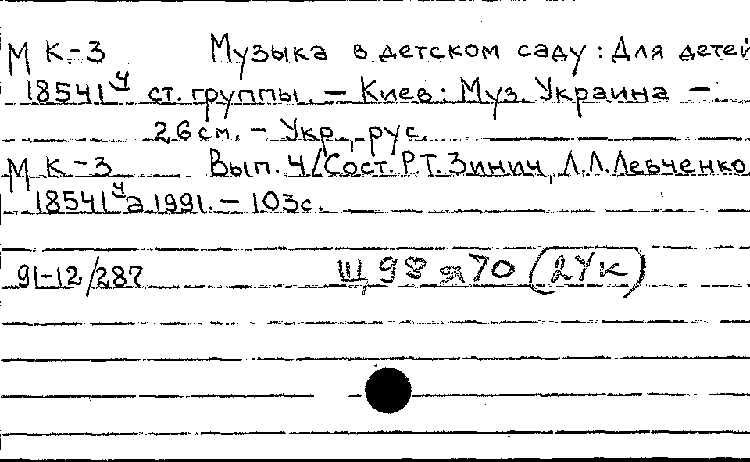 М К-3 Музыка в детском саду: Для детей
18541ч ст. группы. – Киев: Муз. Украина –
26см. – Укр., рус.
М К-3 Вып. 4/Сост. Р.Т. Зинич, Л.Л. Левченко
18541ч а 1991. – 103с.
91-12/287 Щ98я70(2Ук)